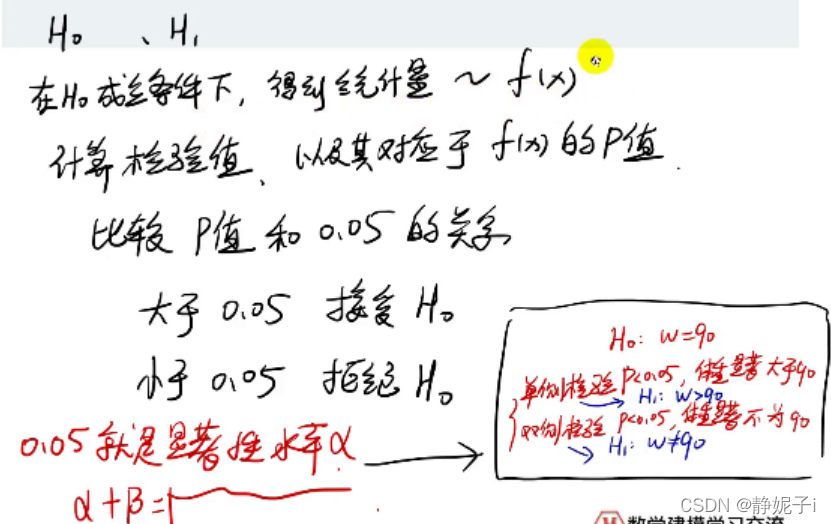 H₀ 、H₁
在H₀成立条件下，得到统计量 ~ f(x)
计算检验值、以及其对应于 f(x) 的P值.
比较 P值 和 0.05 的关系
大于 0.05 接受 H₀
小于 0.05 拒绝 H₀
0.05 就是显著性水平α
α+β=1
H₀: W=90
单侧检验 P<0.05, 体重显著大于90
H₁: W>90
双侧检验 P<0.05, 体重显著不为90
H₁: W≠90
数学建模学习交流
CSDN @静妮子i